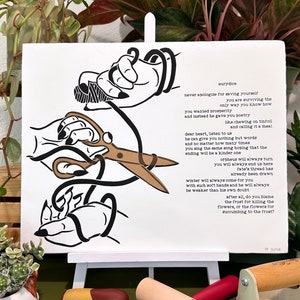 eurydice
never apologize for saving yourself
you are surviving the
only way you know how
you wanted prosperity
and instead he gave you poetry
like chewing on tinfoil
and calling it a meal
dear heart, listen to us
he can give you nothing but words
and no matter how many times
you sing the same song hoping that the
ending will be a kinder one
orpheus will always turn
you will always end us here
fate's thread has
already been drawn
winter will always come for you
with such soft hands and he will always
be weaker than his own doubt
after all, do you blame
the frost for killing the
flowers, or the flowers for
surrendering to the frost?